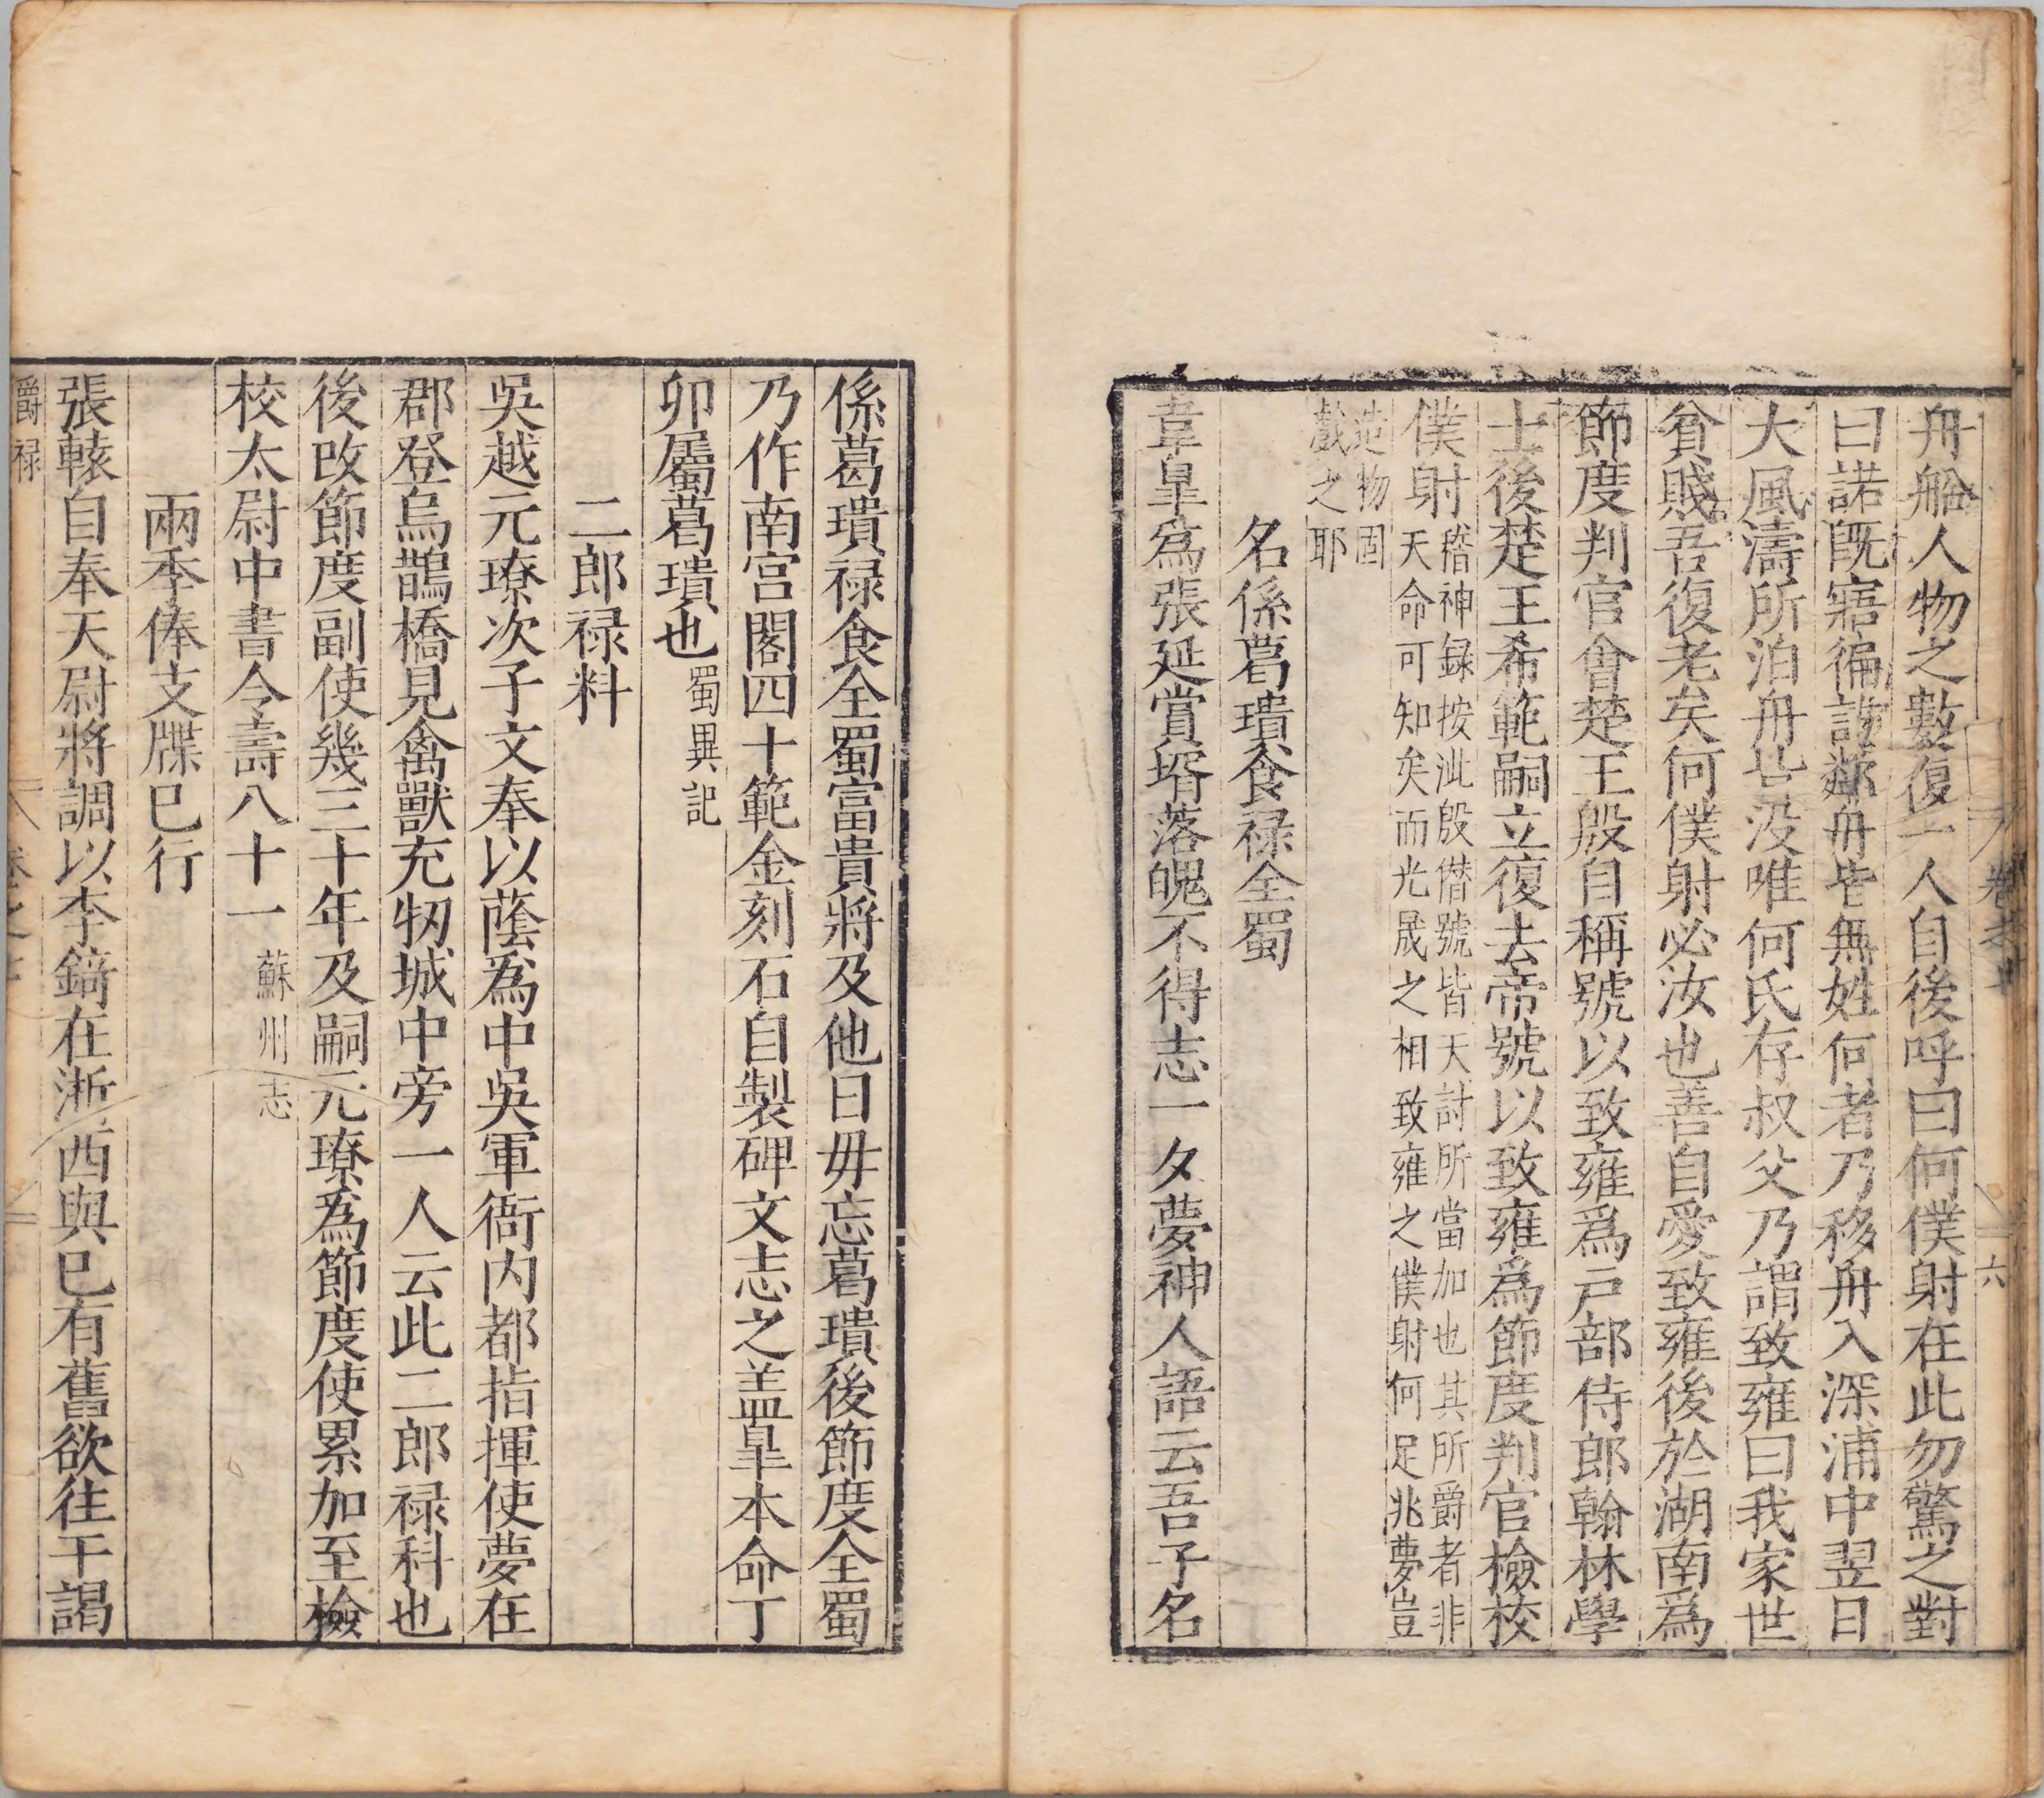 舟船人物之數復一人自後呼曰何僕射在此勿驚之對
曰諾既寤徧訪鄰舟皆無姓何者乃移舟入深浦中翌日
大風濤所泊舟皆没唯何氏存叔父乃謂致雍曰我家世
貧賤吾復老矣何僕射必汝也善自愛致雍後於湖南爲
節度判官會楚王殷自稱號以致雍爲戸部侍郎翰林學
士後楚王希範嗣立復去帝號以致雍爲節度判官檢校
僕射稽神録按此殷僭號皆天討所當加也其所爵者非
天命可知矣而光晟之相致雍之僕射何足兆夢豈
造物固
戲之耶
名係葛璝食禄全蜀
韋皐爲張延賞壻落魄不得志一夕夢神人語云吾子名
係葛璝禄食全蜀富貴將及他日毋忘葛璝後節度全蜀
乃作南宫閣四十範金刻石自製碑文志之盖皐本命丁
卯屬葛璝也蜀異記
二郎禄料
吳越元璙次子文奉以蔭爲中吳軍衙内都指揮使夢在
郡登烏鵲橋見禽獸充牣城中旁一人云此二郎禄科也
後改節度副使幾三十年及嗣元璙爲節度使累加至檢
校太尉中書令壽八十一蘇州志
兩季俸支牒已行
張轅自奉天尉將調以李錡在浙西與已有舊欲往干謁
爵禄